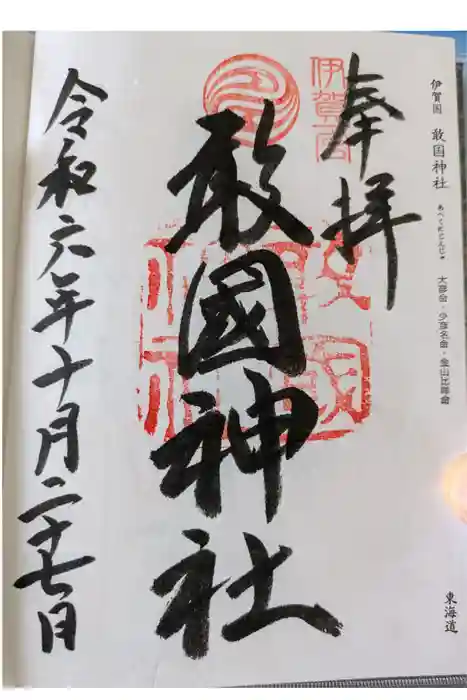 伊賀国 敢国神社 あへくにじんじゃ 大彦命・少彦名命・金山比咩命
東海道
奉拝
伊賀一宮
敢國神社
令和六年十月二十七日